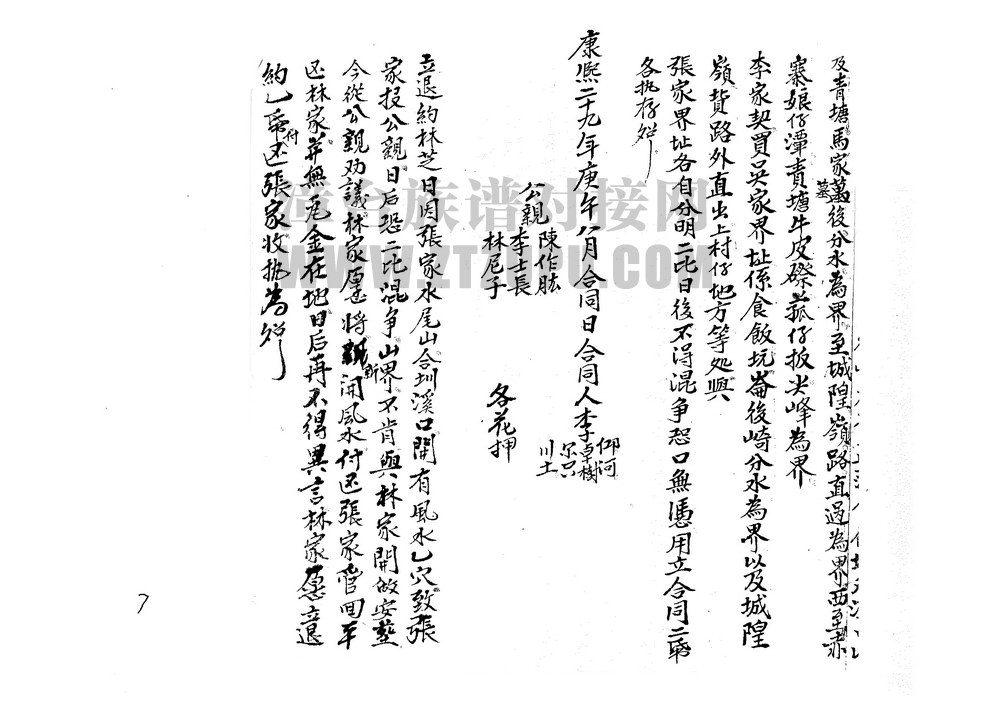 及青塘馬家萬墓後分水為界至城隍嶺路直過為界西至赤
寨娘仔潭責塘牛皮磜菰仔扳尖峰為界
李家契買吳家界址係食飯坑崙後崎分水為界以及城隍
嶺貨路外直出上村仔地方等処與
張家界址各自分明二比日後不得混争恐口無憑用立合同二紙
各执存炤
康熙二十九年庚午八月合同日合同人李仰河
卓樹
尔只
川土
公親陳作肱
李士長
林尼子
各花押
立退約林芝日因張家水尾山合圳溪口開有風水乙穴致張
家投公親日后恐二比混争山界不肯與林家開做安塟
今從公親劝議林家愿将新開風水付还張家管回本
还林家并無厘金在地日后再不得異言林家愿立退
約乙帋付还張家收执為炤
漳台族谱对接网
WWW.ZTZUPU.COM
7